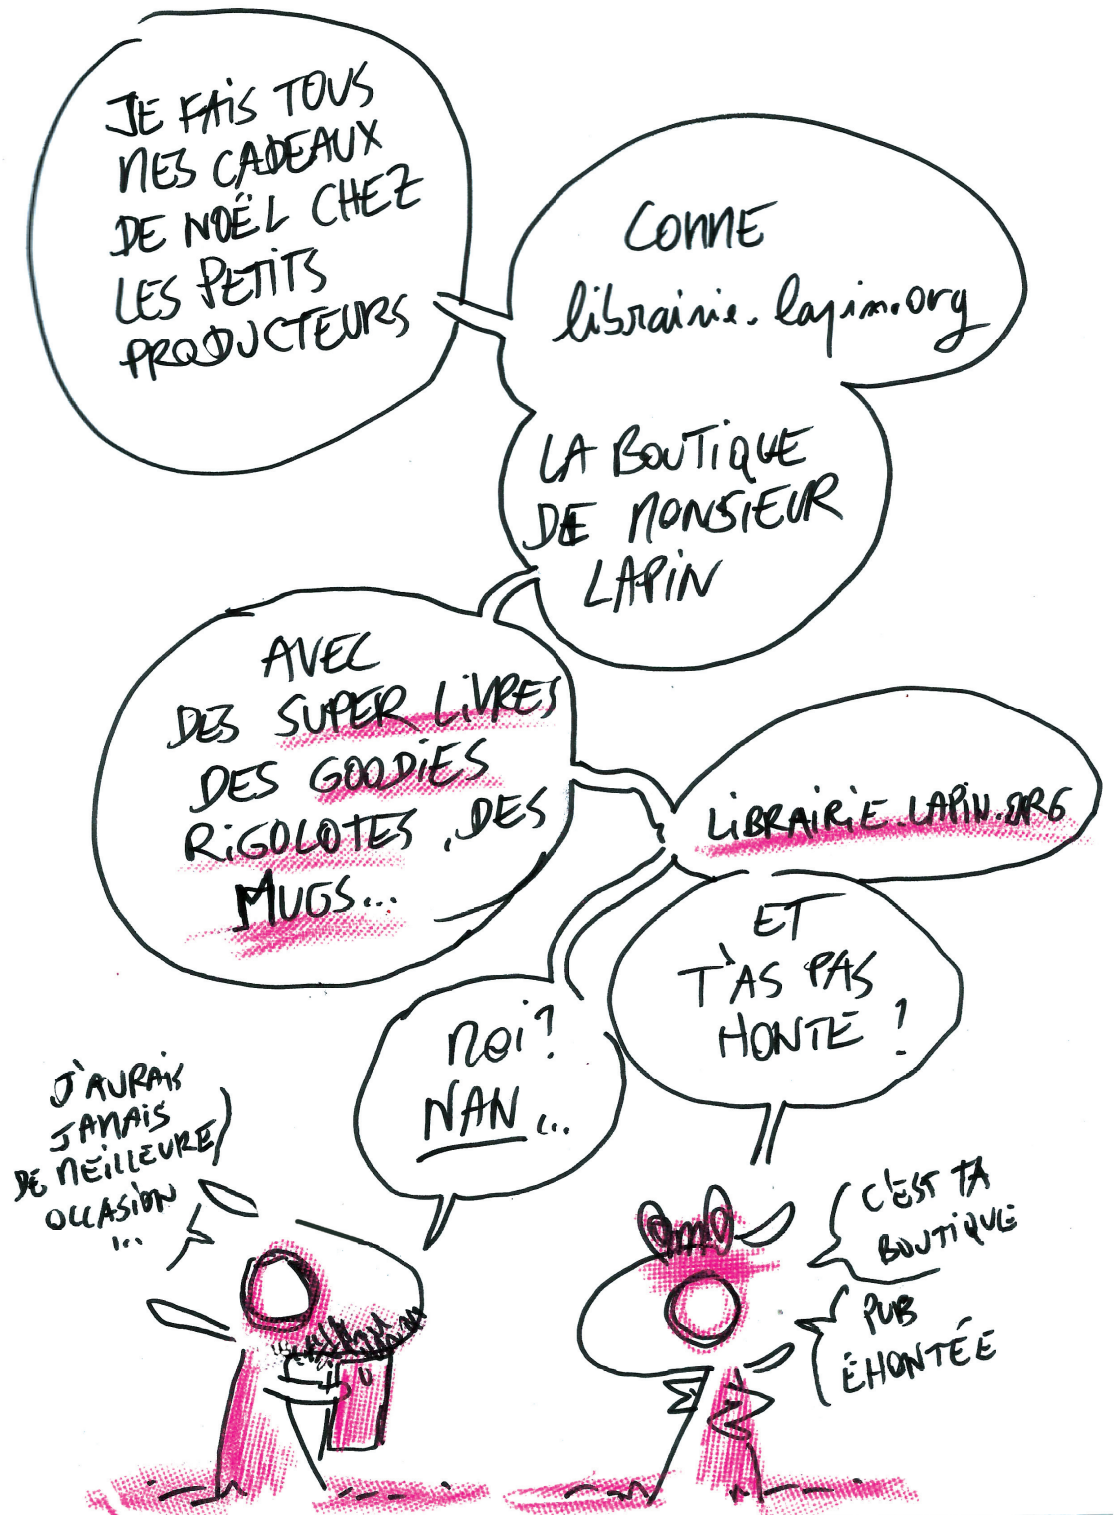 JE FAIS TOUS
MES CADEAUX
DE NOËL CHEZ
LES PETITS
PRODUCTEURS
COMME
librairie.lapin.org
LA BOUTIQUE
DE MONSIEUR
LAPIN
AVEC
DES SUPER LIVRES
DES GOODIES
RIGOLOTES, DES
MUGS...
LIBRAIRIE.LAPIN.ORG
ET
T'AS PAS
HONTE !
MOI ?
NAN...
J'AURAIS
JAMAIS
DE MEILLEURE
OCCASION
...
C'EST TA
BOUTIQUE
PUB
ÉHONTÉE